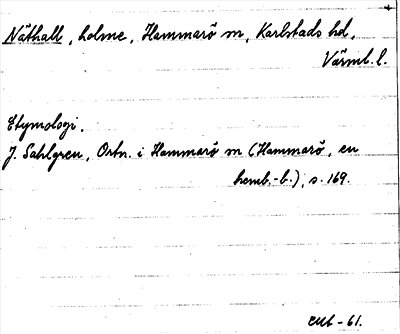 Näthall, holme, Hammarö sn, Karlstads hd,
Värml. l.
Etymologi.
J. Sahlgren, Ortn. i Hammarö sn (Hammarö, en
hemb.-b.), s. 169.
-61.